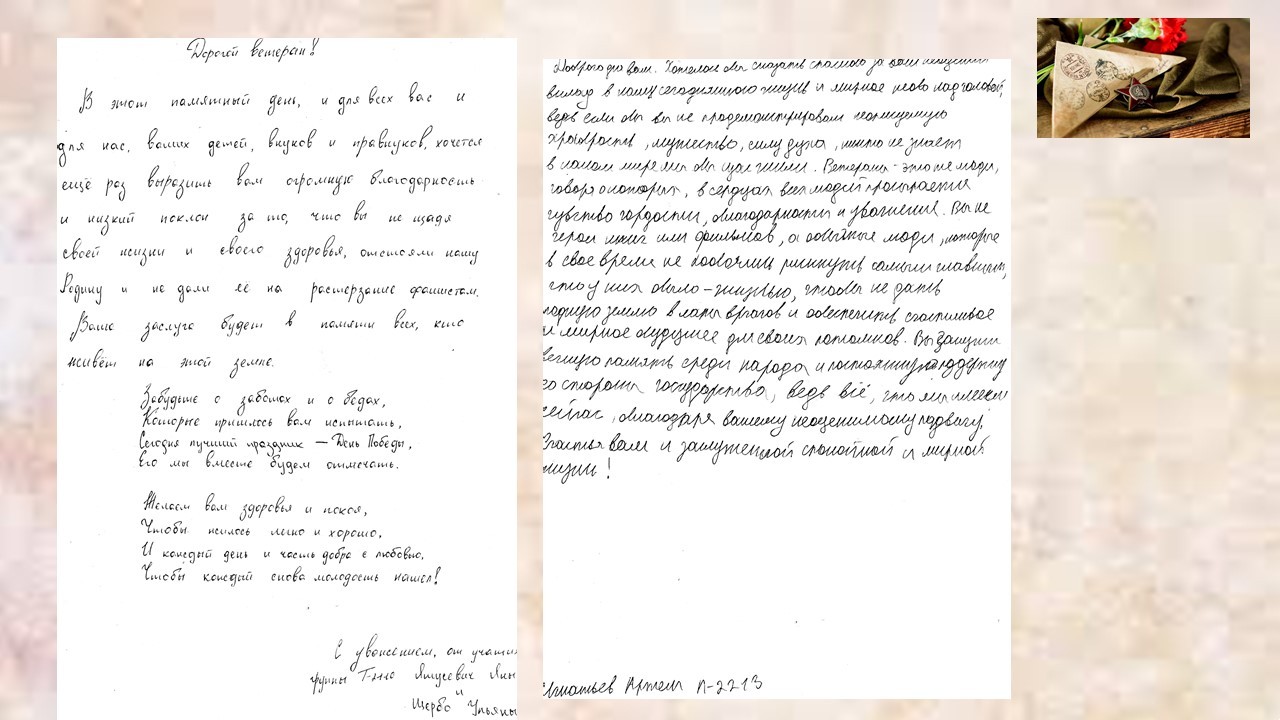 Дорогой ветеран!
В этот памятный день, и для всех вас и
для нас, ваших детей, внуков и правнуков, хочется
ещё раз выразить вам огромную благодарность
и низкий поклон за то, что вы не щадя
своей жизни и своего здоровья, отстояли нашу
Родину и не дали её на растерзание фашистам.
Ваша заслуга будет в памяти всех, кто
живёт на этой земле.
Забудьте о заботах и о бедах,
Которые пришлось вам испытать,
Сегодня лучший праздник — День Победы,
Его мы вместе будем отмечать.
Желаем вам здоровья и покоя,
Чтобы жилось легко и хорошо,
И каждый день и часть добра с любовью,
Чтобы каждый снова молодость нашел!
С уважением, от учащи
группы Т-2110 Яцусевич Яны
и
Щербо Ульяны
Доброго дня вам. Хотелось бы сказать спасибо за ваш неоценим
вклад в нашу сегодняшнюю жизнь и мирное небо над головой,
ведь если бы вы не продемонстрировали неописуемую
храбрость, мужество, силу духа, никто не знает
в каком мире мы бы щас жили. Ветераны - это те люди,
говоря о которых, в сердцах всех людей просыпается
чувство гордости, благодарности и уважения. Вы не
герои книг или фильмов, а обычные люди, которые
в свое время не побоялись рискнуть самым главным,
что у них было - жизнью, чтобы не дать
родную землю в лапы врагов и обеспечить счастливое
и мирное будущее для своих потомков. Вы заслужи
вечную память среди народа и постоянную поддержку
со стороны государства, ведь всё, что мы имеем
сейчас, благодаря вашему неоценимому подвигу.
Счастья вам и заслуженной спокойной и мирной
жизни!
Игнатьев Артём П-2213